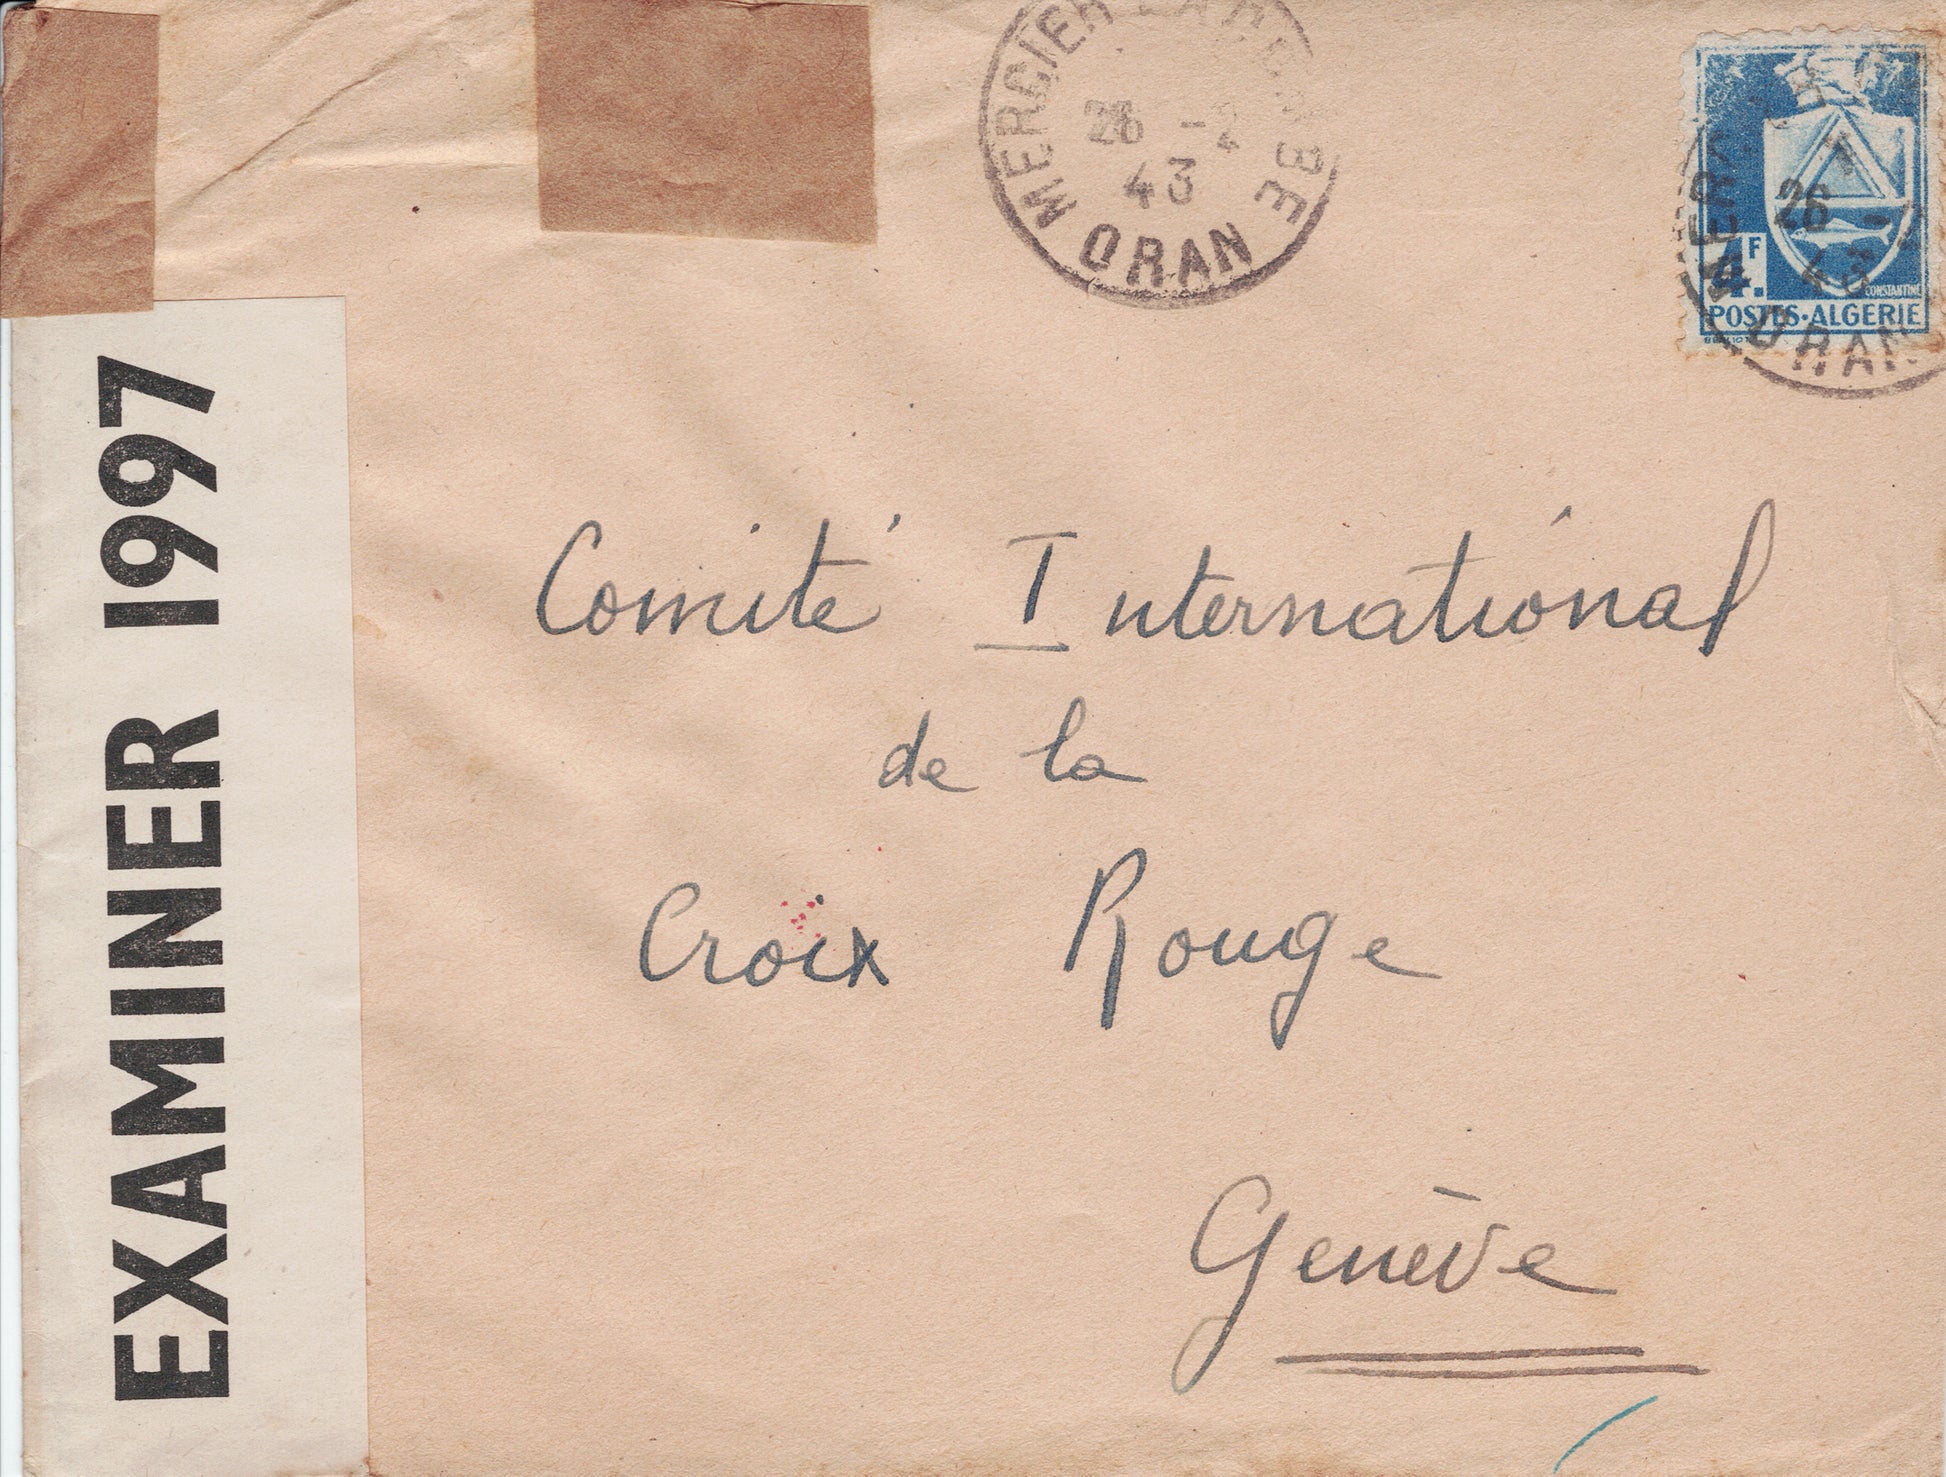 MERCIER-LACOMBE
26 -2
43
ORAN
4F.
CONSTANTINE
POSTES·ALGERIE
26 -
43
ORAN
EXAMINER 1997
Comité International
de la
Croix Rouge
Genève